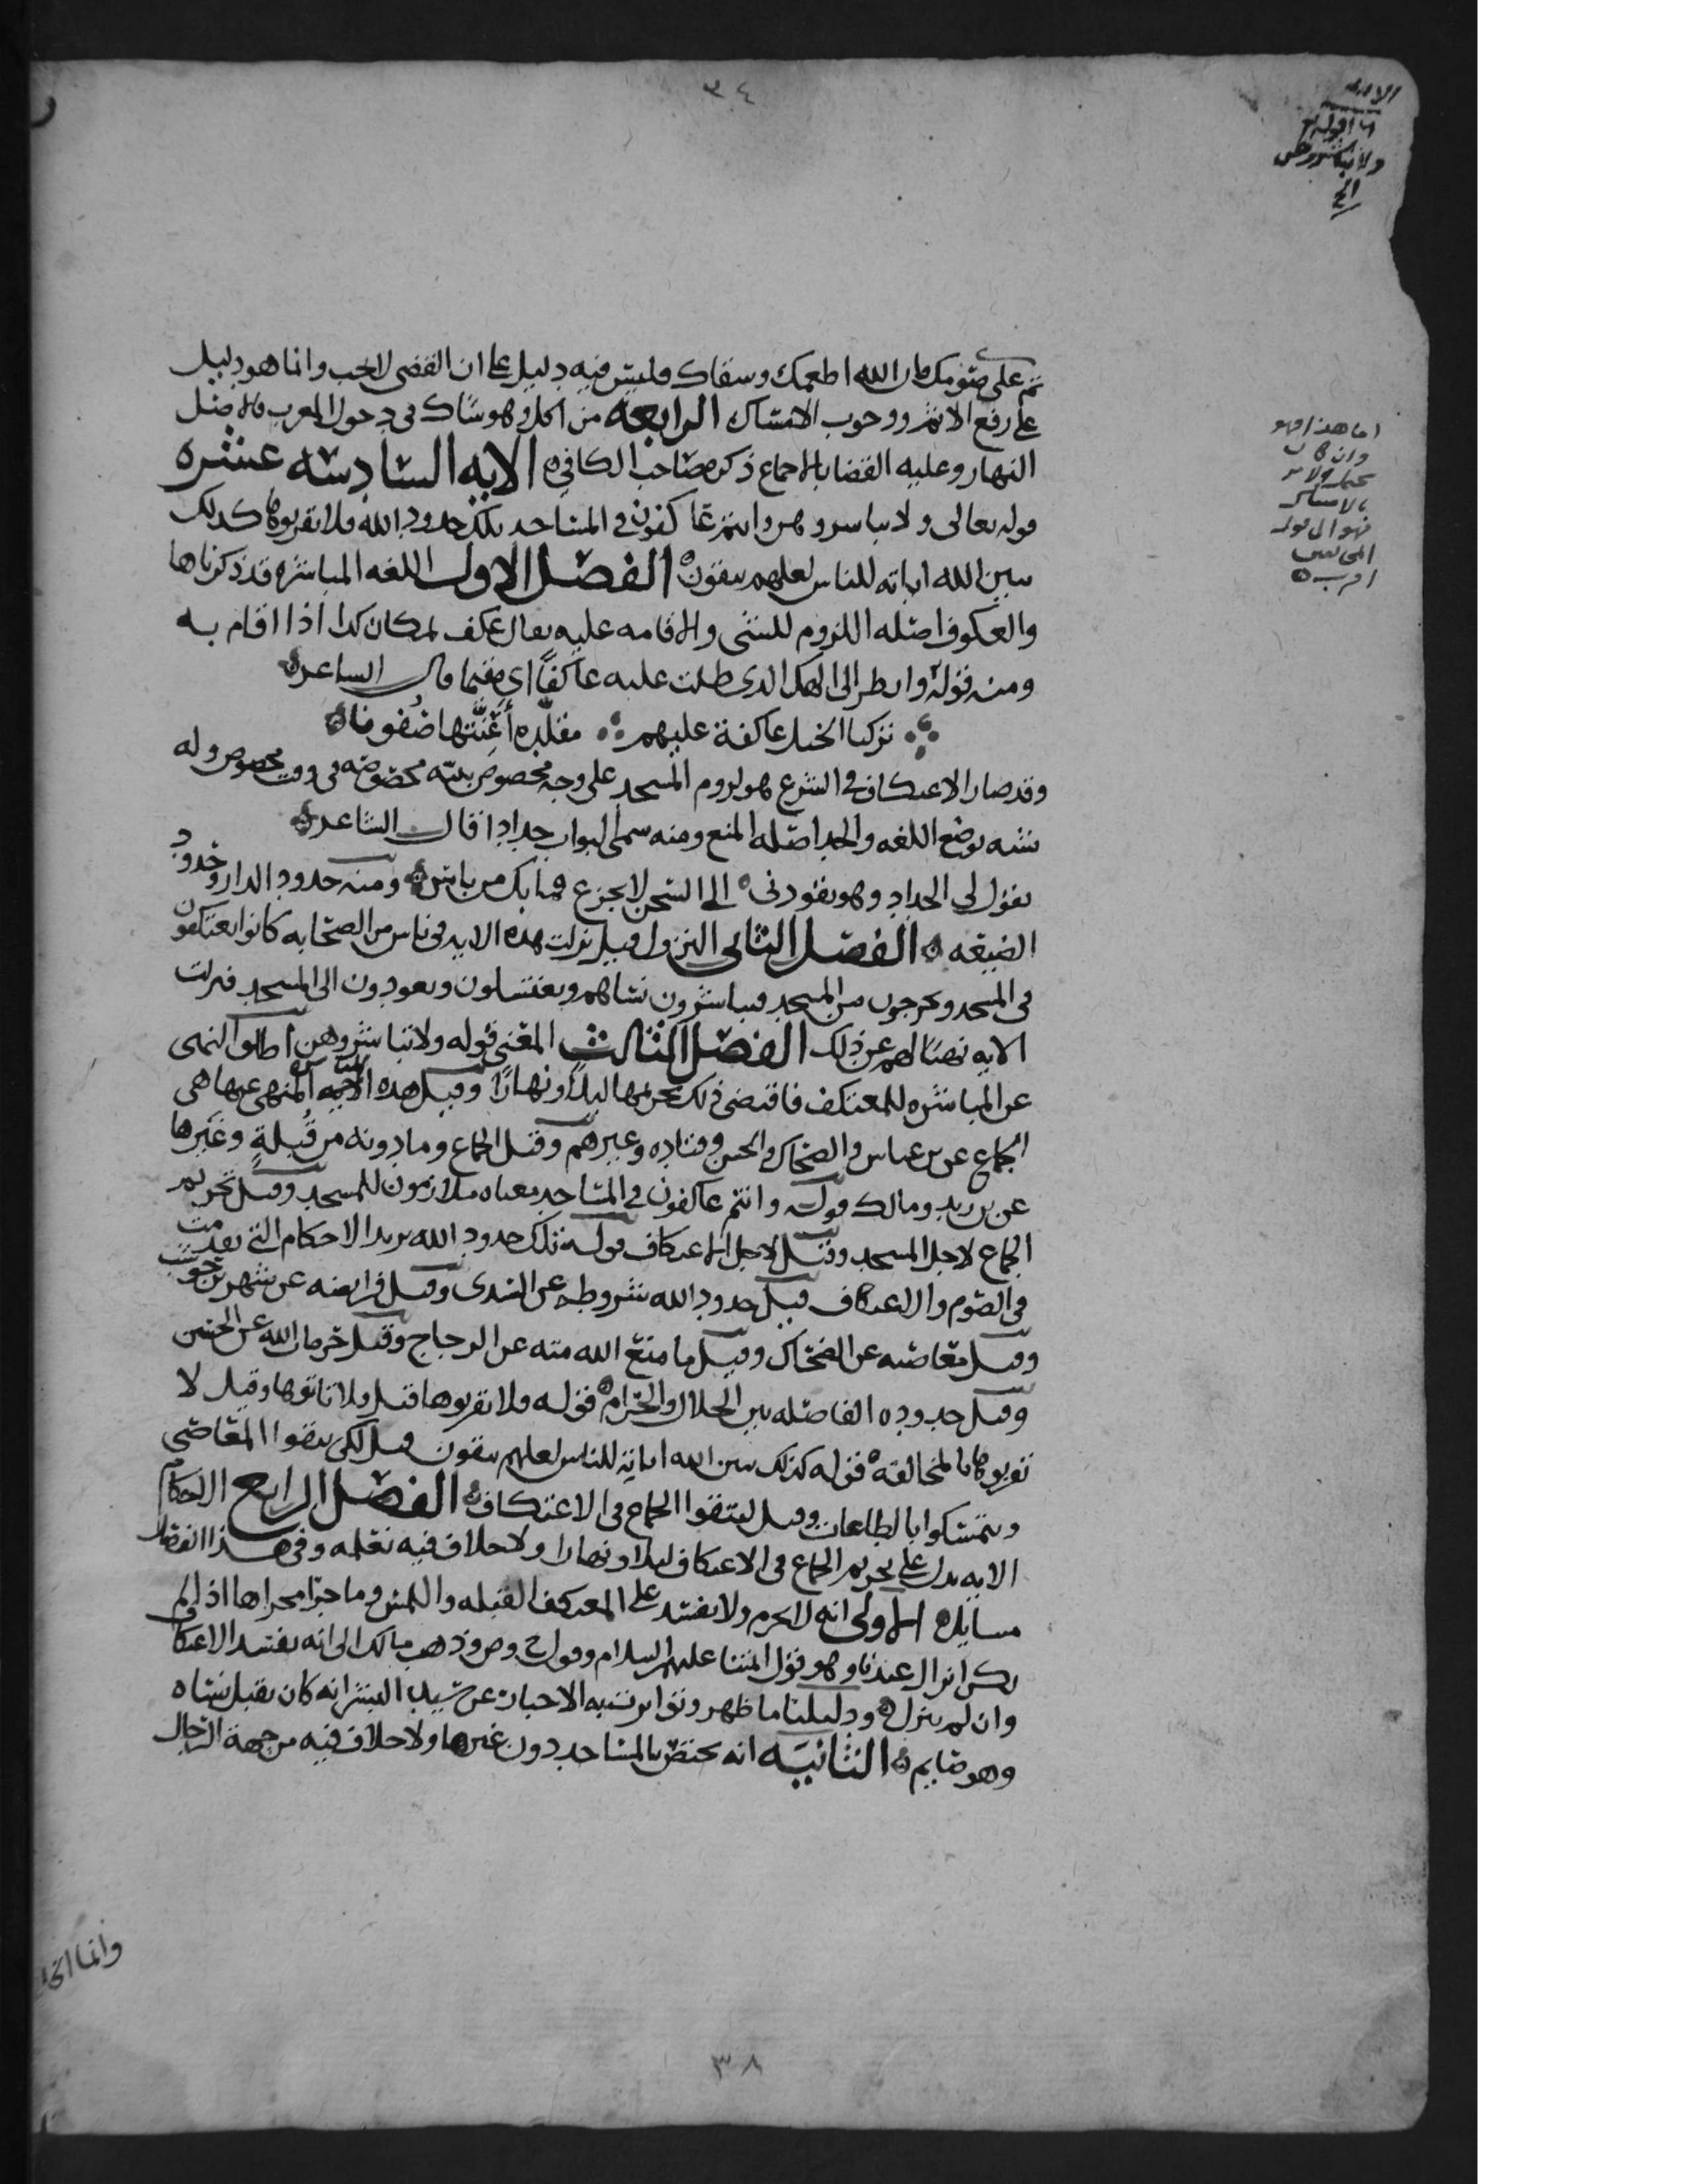 ٣٤
الايه
١٦ قوله تع
ولا تباشروهن
الخ
تم على صومك فان الله اطعمك وسقاك فليس فيه دليل على ان القضى لا يجب وانما هو دليل
على رفع الاثم ووجوب الامساك الرابعه من اكل وهو شاك في دخول المغرب فالاصل
النهار وعليه القضا بالاجماع ذكره صاحب الكافي ه الايه السادسه عشره
قوله تعالى ولا تباسروهن وانتم عاكفون في المساجد تلك حدود الله فلا تقربوها كدلك
يبين الله اياته للناس لعلهم يتقون ه الفصل الاول اللغه المباشره قد ذكرناها
والعكوف اصله اللزوم للشي والاقامه عليه يقال عكف بمكان كدا اذا اقام به
ومنه قوله وانظر الى الهك الدي ظلت عليه عاكفًا اي مقيما قال الساعر ه
تركنا الخيل عاكفة عليهم ∴ مقلّده أَعِنَّتها صُفونا ه
وقد صار الاعتكاف في الشرع هو لزوم المسجد على وجه مخصوص بنيّه مخصوصه في وقت مخصوص وله
شبه بوضع اللغه والحد اصله المنع ومنه سمى البواب حدادا قال الشاعر ه
يقول لي الحداد وهو يقودني ه الى السجن لا تجزع فما بك من باس ه ومنه حدود الدار وحدود
الضيعه ه الفصل الثاني النزول قيل نزلت هده الايه في ناس من الصحابه كانوا يعتكفون
في المسجد ويخرجون من المسجد فيباشرون نساهم ويغتسلون ويعودون الى المسجد فنزلت
الايه نهيًا لهم عن ذلك الفصل الثالث المعنى قوله ولا تباشروهن اطلق النهى
عن المباشره للمعتكف فاقتضى ذلك تحريمها ليلًا ونهارًا وقيل هده المباشره المنهى عنها هي
الجماع عن بن عباس والضحاك والحسن وقتاده وغيرهم وقيل الجماع وما دونه من قُبلةٍ وغيرها
عن بن زيد ومالك قوله وانتم عاكفون في المساجد معناه ملازمون للمسجد وقيل تحريم
الجماع لاجل المسجد وقيل لاجل الاعتكاف قوله تلك حدود الله يريد الاحكام التي تقدمت
في الصوم والاعتكاف قيل حدود الله شروطه عن السدي وقيل فرايضه عن شهر بن حوشب
وقيل معاصيه عن الضحاك وقيل ما منع الله منه عن الزجاج وقيل حرمات الله عن الحسن
وقيل حدوده الفاصله بين الحلال والحرام ه قوله فلا تقربوها قيل ولا تاتوها وقيل لا
تقربوها بالمخالفه ه قوله كذلك يبين الله اياته للناس لعلهم يتقون قيل لكي يتقوا المعاصي
ويتمسكوا بالطاعات وقيل ليتقوا الجماع في الاعتكاف ه الفصل الرابع الاحكام
الايه تدل على تحريم الجماع في الاعتكاف ليلا ونهارا ولا خلاف فيه نعلمه وفي هذا الفصل
مسايل ه الاولى انه لا يحرم ولا يفسد على المعتكف القبله واللمس وما جرا مجراها اذا لم
يكن انزال عندنا وهو قول ائمتنا عليهم السلام وقول ح وص وذهب مالك الى انه يفسد الاعتكاف
وان لم ينزل ه ودليلنا ما ظهر وتواتر نسبه الاخبار عن سيد البشر انه كان يقبل نساه
وهو صايم ه الثانيه انه يختص بالمساجد دون غيرها ولا خلاف فيه من جهة الرجال
اما هذا فهو
وان كان
بالامساك
فهو الى قوله
اقرب ه
وانما
٣٨